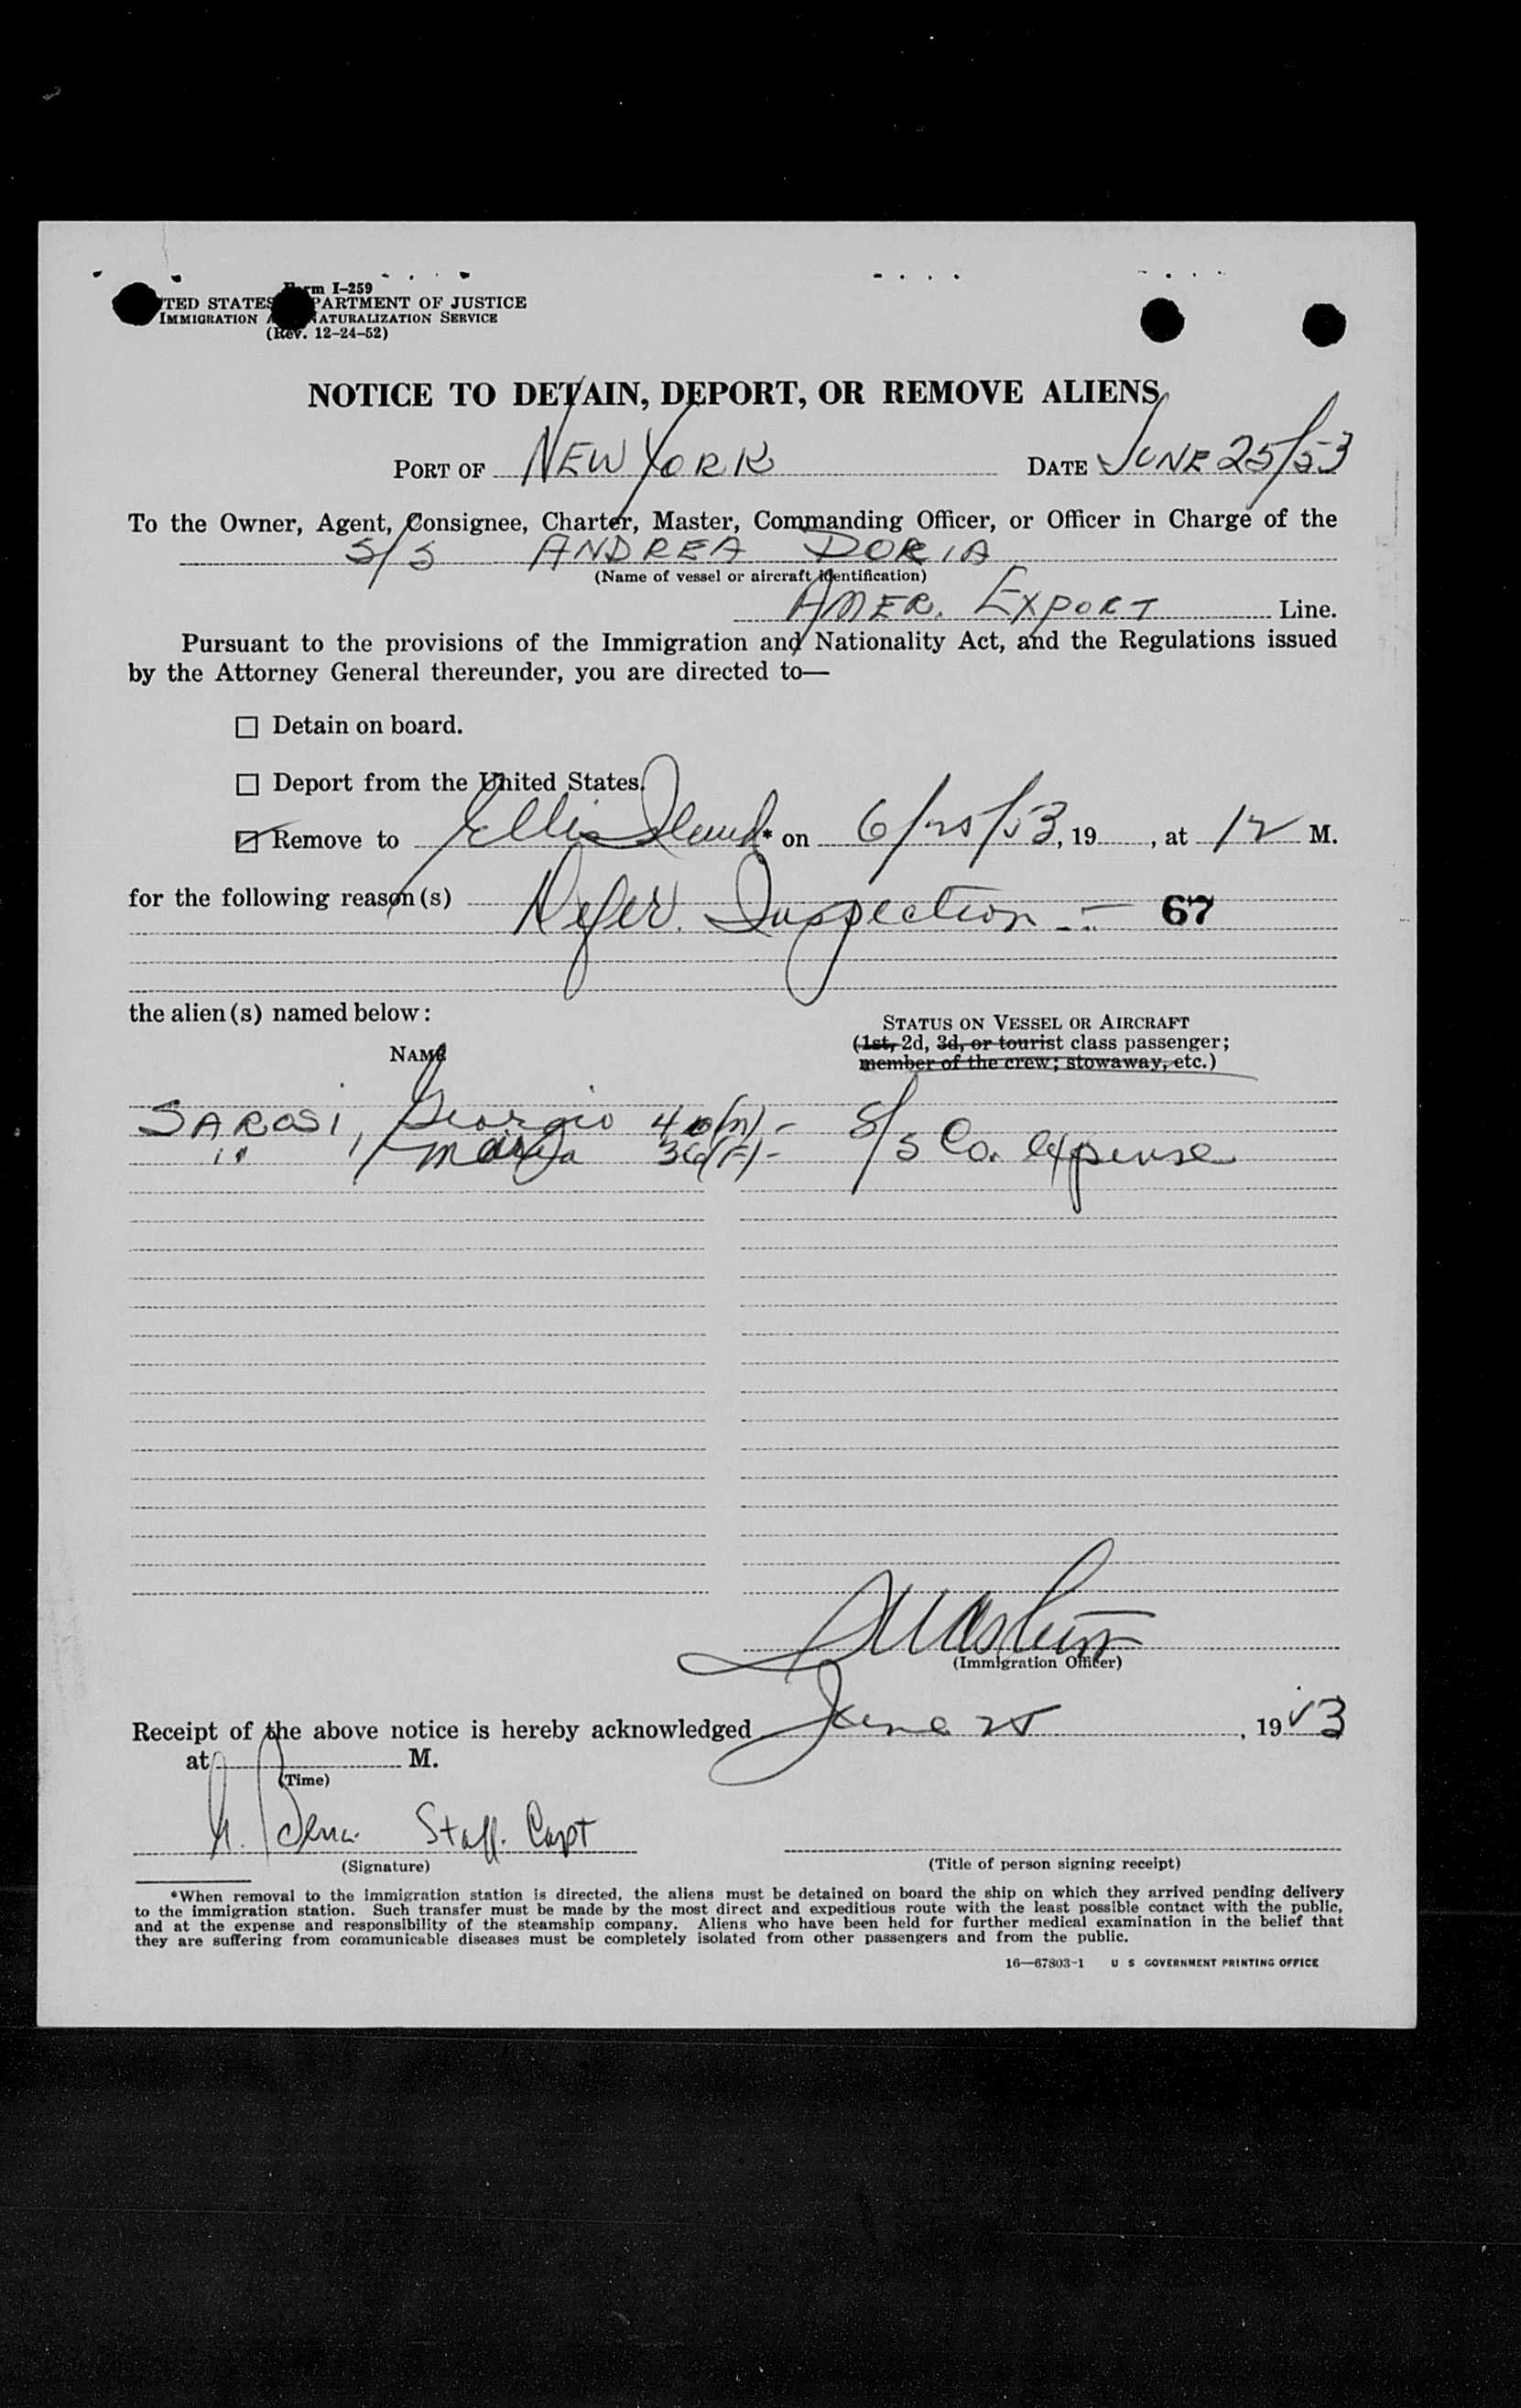 Form I-259
UNITED STATES DEPARTMENT OF JUSTICE
IMMIGRATION AND NATURALIZATION SERVICE
(Rev. 12-24-52)
NOTICE TO DETAIN, DEPORT, OR REMOVE ALIENS
PORT OF NEW YORK DATE JUNE 25/53
To the Owner, Agent, Consignee, Charter, Master, Commanding Officer, or Officer in Charge of the
S/S ANDREA DORIA
(Name of vessel or aircraft identification)
AMER. EXPORT Line.
Pursuant to the provisions of the Immigration and Nationality Act, and the Regulations issued
by the Attorney General thereunder, you are directed to—
☐ Detain on board.
☐ Deport from the United States.
☑ Remove to Ellis Island* on 6/25/53, 19 , at 12 M.
for the following reason(s) Defer. Inspection — 67
the alien(s) named below:
STATUS ON VESSEL OR AIRCRAFT
NAME (1st, 2d, 3d, or tourist class passenger;
member of the crew; stowaway, etc.)
SAROSI, Georgio 40(M) - S/S Co. expense
" Maria 36(F) -
(Immigration Officer)
Receipt of the above notice is hereby acknowledged June 25, 1953
at M.
(Time)
Staff. Capt
(Signature) (Title of person signing receipt)
*When removal to the immigration station is directed, the aliens must be detained on board the ship on which they arrived pending delivery
to the immigration station. Such transfer must be made by the most direct and expeditious route with the least possible contact with the public,
and at the expense and responsibility of the steamship company. Aliens who have been held for further medical examination in the belief that
they are suffering from communicable diseases must be completely isolated from other passengers and from the public.
16—67803-1 U S GOVERNMENT PRINTING OFFICE